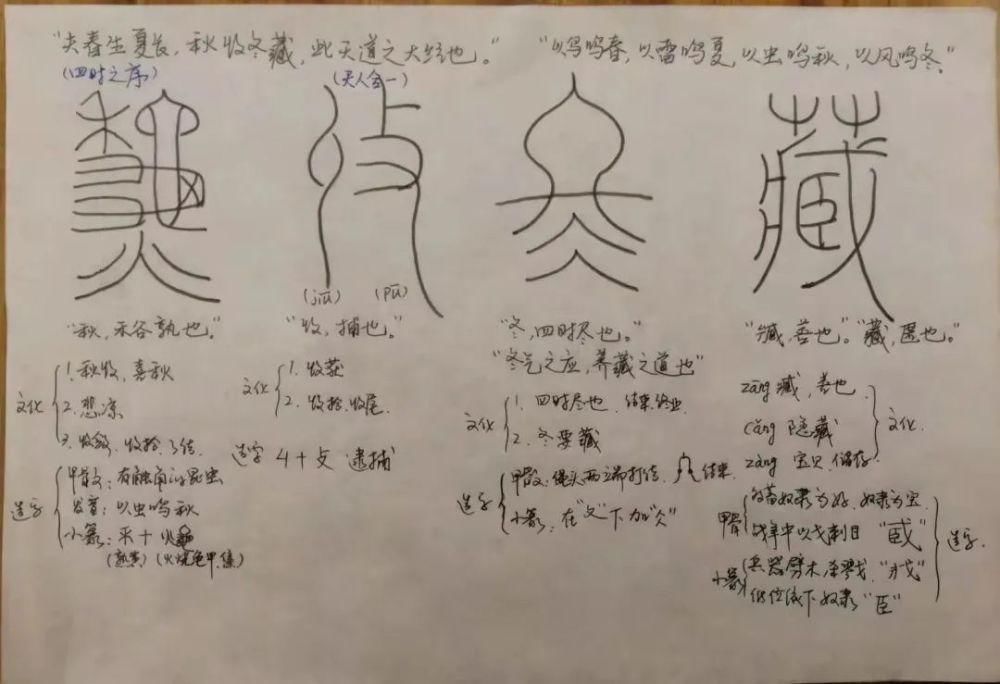 “夫春生夏长，秋收冬藏，此天道之大经也。” “以鸟鸣春，以雷鸣夏，以虫鸣秋，以风鸣冬。”
(四时之序) (天人合一)
收 冬 藏
(jiū) (pū)
“秋，禾谷孰也。” “收，捕也。” “冬，四时尽也。” “臧，善也。”“藏，匿也。”
“冬气之应，养藏之道也”
文化
1. 秋收，喜秋
2. 悲凉
3. 收敛 收拾 了结
造字
甲骨文：有触角的昆虫
发音：以虫鸣秋
小篆：禾＋火
(成熟) (火烧龟甲、集)
文化
1. 收获
2. 收拾、收尾.
造字 丩＋攵 逮捕
文化
1. 四时尽也 结束、终止
2. 冬要藏
造字
甲骨文：绳头两端打结 结束
小篆：在“夂”下加“仌”
zāng 臧，善也
cáng 隐藏
zàng 宝贝 储存
文化
甲骨
奴隶为好、奴隶为宝
战争中以戈刺目 “臤”
小篆
兵器劈木杀戮 “戕”
低位低下奴隶 “臣”
造字